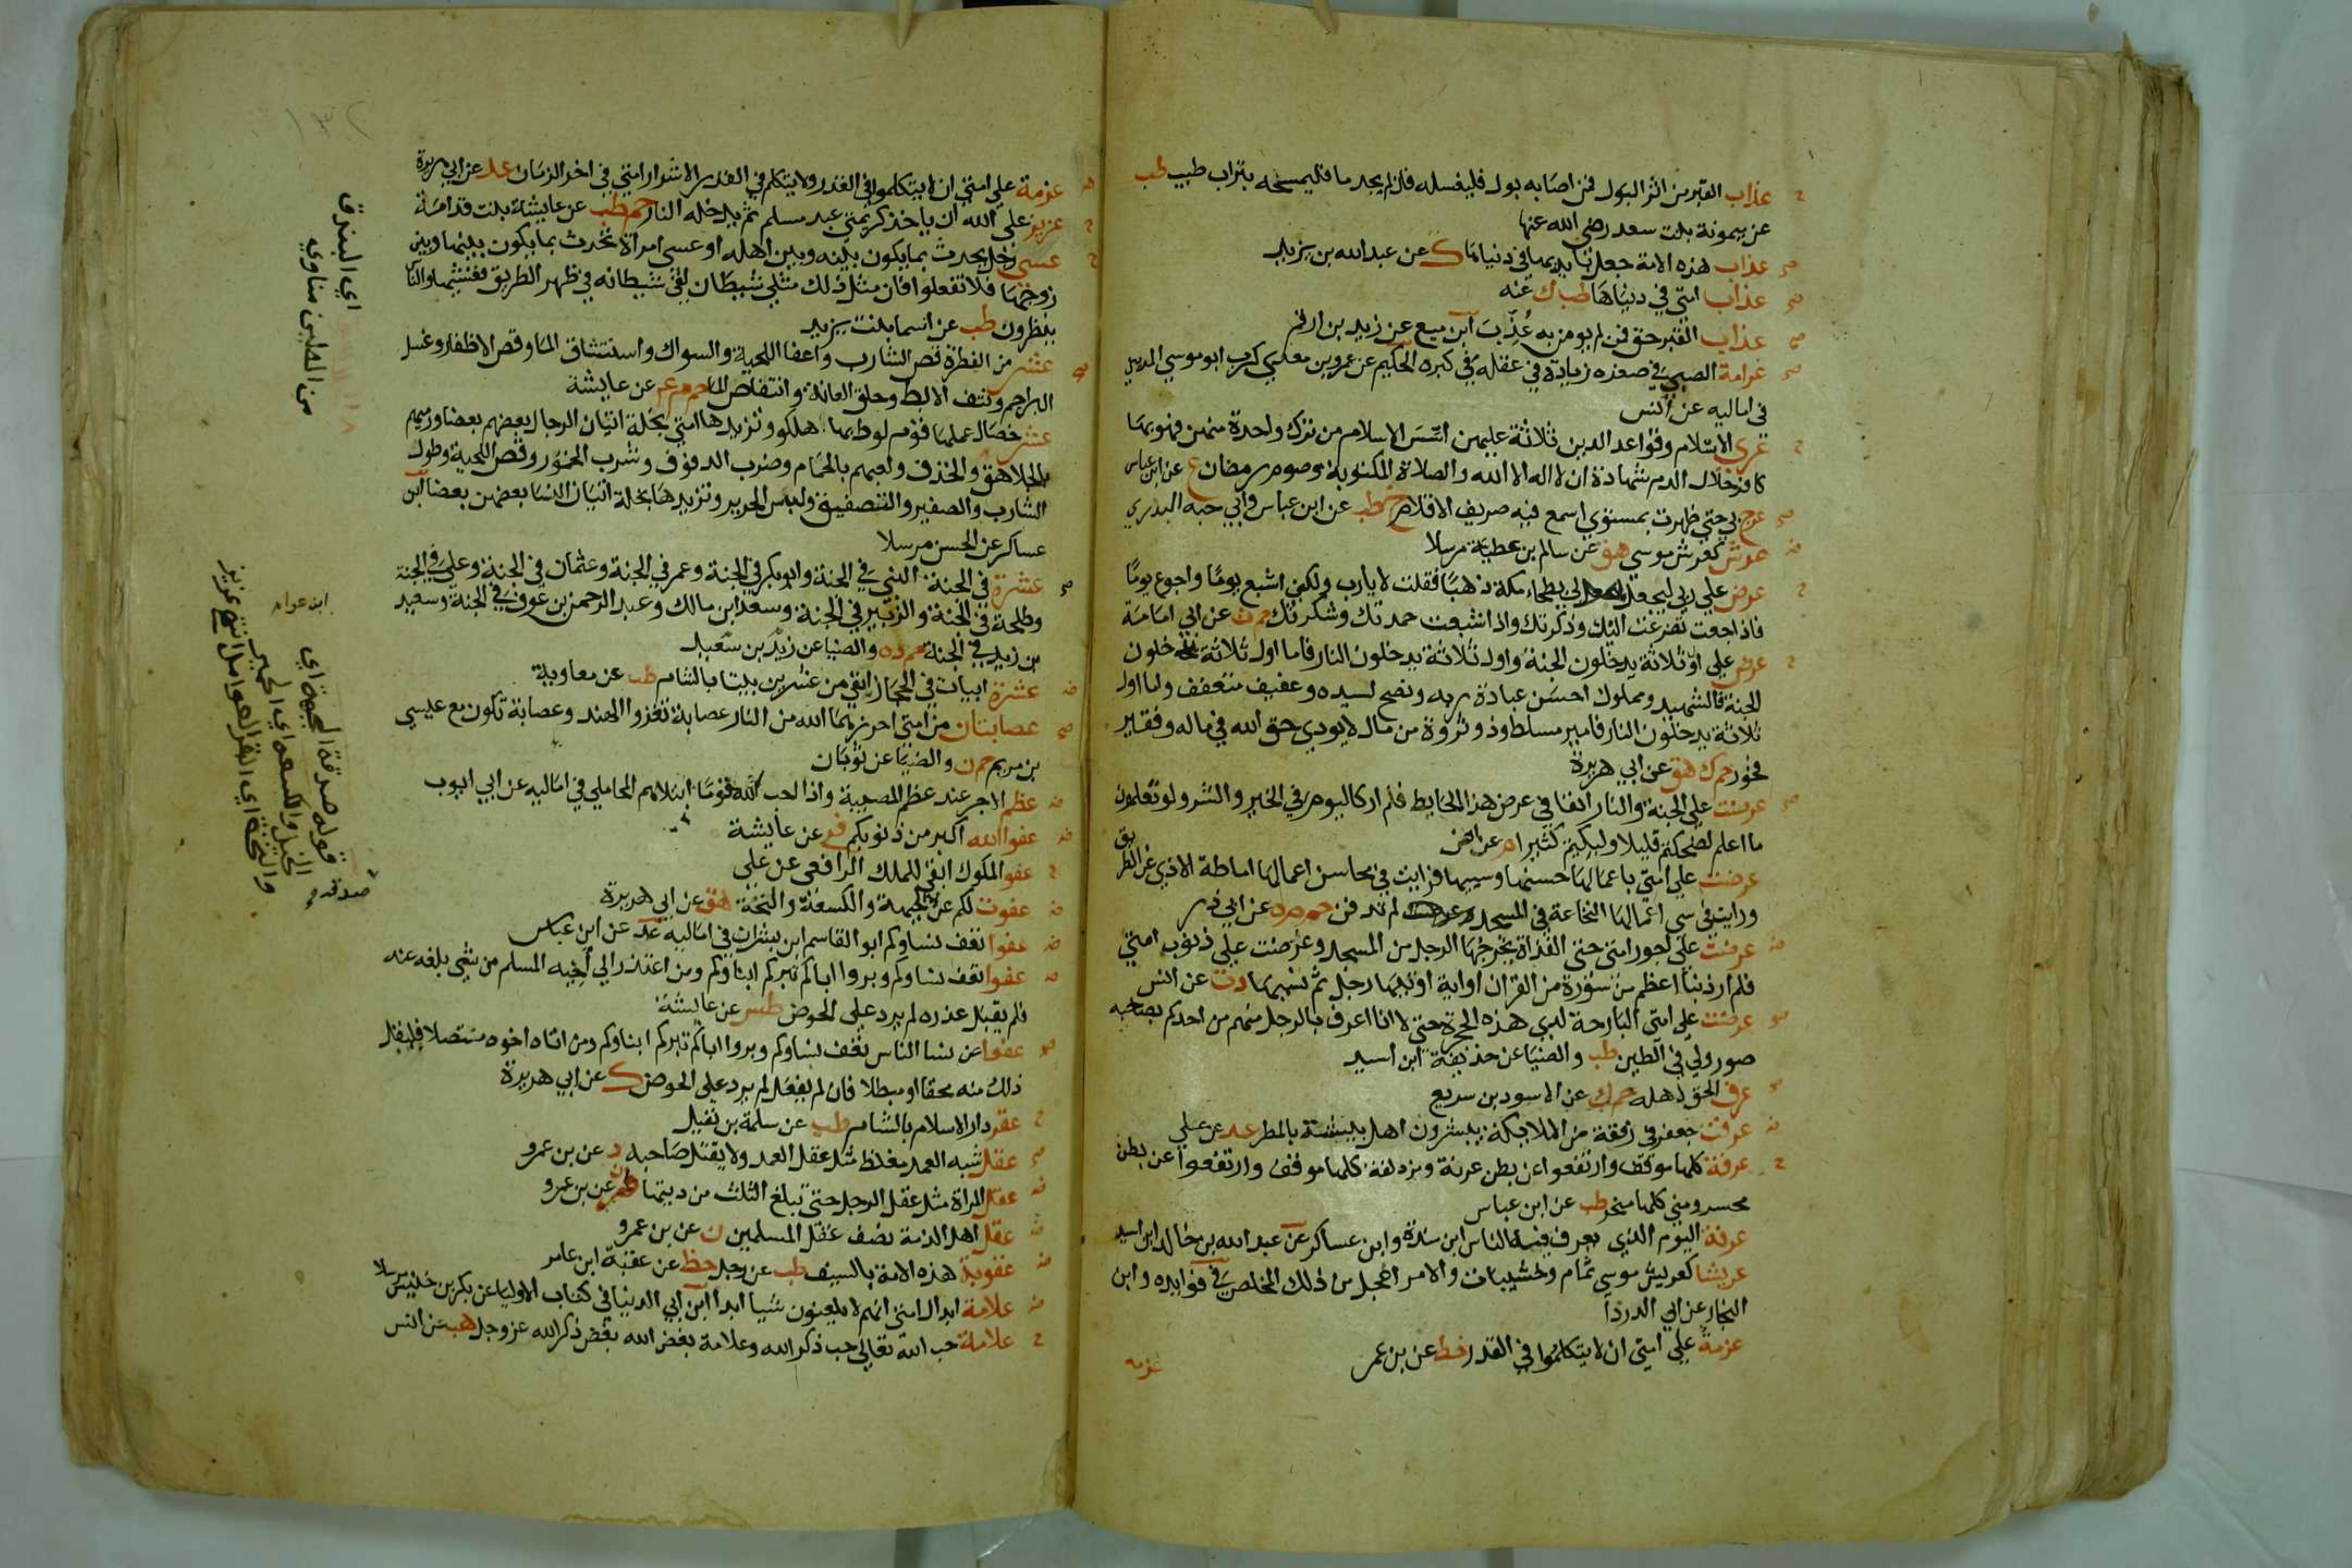 عذاب القبر من اثر البول فمن اصابه بول فليغسله فان لم يجد ما فليمسحه بتراب طيب طب
عن ميمونة بنت سعد رضي الله عنها
عذاب هذه الامة جعل بايديها في دنياها ك عن عبد الله بن يزيد
عذاب امتي في دنياها طب ك عنه
عذاب القبر حق فمن لم يومن به عذب ابن منيع عن زيد بن ارقم
غرامة الصبي في صغره زيادة في عقله في كبره الحكيم عن عمرو بن معدي كرب ابو موسي المديني
في اماليه عن انس
عري الاسلام وقواعد الدين ثلاثة عليهن اسس الاسلام من ترك واحدة منهن فهو بها
كافر حلال الدم شهادة ان لا اله الا الله والصلاة المكتوبة وصوم رمضان ع عن ابن عباس
عرج بي حتي ظهرت بمستوي اسمع فيه صريف الاقلام خ طب عن ابن عباس وابي حبة البدري
عرش كعرش موسي هق عن سالم بن عطية مرسلا
عرض علي ربي ليجعل لي بطحاء مكة ذهبا فقلت لا يارب ولكني اشبع يوما واجوع يوما
فاذا جعت تضرعت اليك وذكرتك واذا شبعت حمدتك وشكرتك حم ت عن ابي امامة
عرض علي اول ثلاثة يدخلون الجنة واول ثلاثة يدخلون النار فاما اول ثلاثة يدخلون
الجنة فالشهيد ومملوك احسن عبادة ربه ونصح لسيده وعفيف متعفف واما اول
ثلاثة يدخلون النار فامير مسلط وذو ثروة من مال لا يودي حق الله في ماله وفقير
فخور حم ك هق عن ابي هريرة
عرضت علي الجنة والنار انفا في عرض هذا الحايط فلم ار كاليوم في الخير والشر ولو تعلمون
ما اعلم لضحكتم قليلا ولبكيتم كثيرا م عن انس
عرضت علي امتي باعمالها حسنها وسيها فرايت في محاسن اعمالها اماطة الاذي عن الطريق
ورايت في سي اعمالها النخاعة في المسجد لم تدفن حم م ه عن ابي ذر
عرضت علي اجور امتي حتي القذاة يخرجها الرجل من المسجد وعرضت علي ذنوب امتي
فلم ار ذنبا اعظم من سورة من القران او اية اوتيها رجل ثم نسيها د ت عن انس
عرضت علي امتي البارحة لدي هذه الحجرة حتي لانا اعرف بالرجل منهم من احدكم بصاحبه
صوروا لي في الطين طب والضيا عن حذيفة ابن اسيد
عرف الحق لاهله حم ك عن الاسود بن سريع
عرفت جعفر في رفقة من الملايكة يبشرون اهل بيشة بالمطر عد عن علي
عرفة كلها موقف وارتفعوا عن بطن عرنة ومزدلفة كلها موقف وارتفعوا عن بطن
محسر ومني كلها منحر طب عن ابن عباس
عرفة اليوم الذي يعرف فيه الناس ابن مندة وابن عساكر عن عبد الله بن خالد ابن اسيد
عريشا كعريش موسي ثمام وخشيبات والامر اعجل من ذلك المخلص في فوايده وابن
النجار عن ابي الدردا
عزمة علي امتي ان لا يتكلموا في القدر خط عن بن عمر
عزمه
١٣٢
عزمة علي امتي ان لا يتكلموا في القدر ولا يتكلم في القدر الا شرار امتي في اخر الزمان عد عن ابي هريرة
عزيز علي الله ان ياخذ كريمتي عبد مسلم ثم يدخله النار حم طب عن عايشة بنت قدامة
عسي رجل يحدث بما يكون بينه وبين اهله او عسي امراة تحدث بما يكون بينها وبين
زوجها فلا تفعلوا فان مثل ذلك مثل شيطان لقي شيطانه في ظهر الطريق فغشيها والناس
ينظرون طب عن اسما بنت يزيد
عشر من الفطرة قص الشارب واعفا اللحية والسواك واستنشاق الما وقص الاظفار وغسل
البراجم ونتف الابط وحلق العانة وانتقاص الما حم م عن عايشة
عشر خصال عملها قوم لوط بها هلكوا وتزيدها امتي بخلة اتيان الرجال بعضهم بعضا ورميهم
بالجلاهق والخذف ولعبهم بالحمام وضرب الدفوف وشرب الخمور وقص اللحية وطول
الشارب والصفير والتصفيق ولبس الحرير وتزيدها بخلة اتيان النسا بعضهن بعضا ابن
عساكر عن الحسن مرسلا
عشرة في الجنة النبي في الجنة وابو بكر في الجنة وعمر في الجنة وعثمان في الجنة وعلي في الجنة
وطلحة في الجنة والزبير في الجنة وسعد ابن مالك وعبد الرحمن بن عوف في الجنة وسعيد
بن زيد في الجنة حم د ه والضيا عن زيد بن سعيد
عشرة ابيات في الحجاز ابقي من عشرين بيتا بالشام طب عن معاوية
عصابتان من امتي احرزهما الله من النار عصابة تغزوا الهند وعصابة تكون مع عيسي
بن مريم حم ن والضيا عن ثوبان
عظم الاجر عند عظم المصيبة واذا احب الله قوما ابتلاهم المحاملي في اماليه عن ابي ايوب
عفوا الله اكبر من ذنوبكم فر عن عايشة
عفو الملوك ابقي للملك الرافعي عن علي
عفوت لكم عن الجبهة والكسعة والنخة هق عن ابي هريرة
عفوا تعف نساوكم ابو القاسم ابن بشران في اماليه عد عن ابن عباس
عفوا تعف نساوكم وبروا اباكم تبركم ابناوكم ومن اعتذر الي اخيه المسلم من شي بلغه عنه
فلم يقبل عذره لم يرد علي الحوض طس عن عايشة
عفوا عن نسا الناس تعف نساوكم وبروا اباكم تبركم ابناوكم ومن اتاه اخوه متنصلا فليقبل
ذلك منه محقا او مبطلا فان لم يفعل لم يرد علي الحوض ك عن ابي هريرة
عقر دار الاسلام بالشام طب عن سلمة بن نفيل
عقل شبه العمد مغلظ مثل عقل العمد ولا يقتل صاحبه د عن بن عمرو
عقل المراة مثل عقل الرجل حتي تبلغ الثلث من ديتها ن عن بن عمرو
عقل اهل الذمة نصف عقل المسلمين ن عن بن عمرو
عقوبة هذه الامة بالسيف طب عن رجل خط عن عقبة ابن عامر
علامة ابدال امتي انهم لا يلعنون شيا ابدا ابن ابي الدنيا في كتاب الاوليا عن بكر بن خنيس مرسلا
علامة حب الله تعالي حب ذكر الله وعلامة بغض الله بغض ذكر الله عز وجل هب عن انس
اي البندق
من الطين مناوي
ابن عوام
قوله صدقة الجبهة اي
الخيل والكسعة اي الحمير
والنخة اي البقر العوامل انتهي عزيز
صدقة